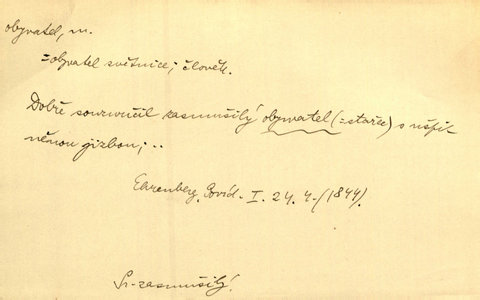 obyvatel, m.
=obyvatel světnice; člověk.
Dobře souzvučil zasmušilý obywatel (=stařec) s
něnou gizbou; ..
Ehrenberg, Povíd. I. 24. 4. (1844).
Sr. zasmušilý.